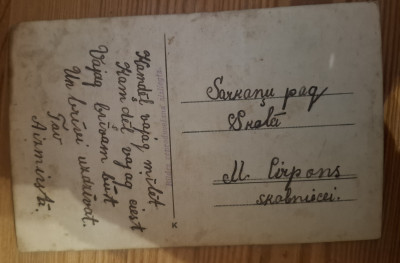 Kamdēļ vajag mīlēt
Kam dēļ vajag ciest
Vajag brīvam būt
Un brīvi uzdzīvot.
Tav
Aizmirsti.
Sarkaņu pag
Skolā
M. Cirpons
skolniecei.